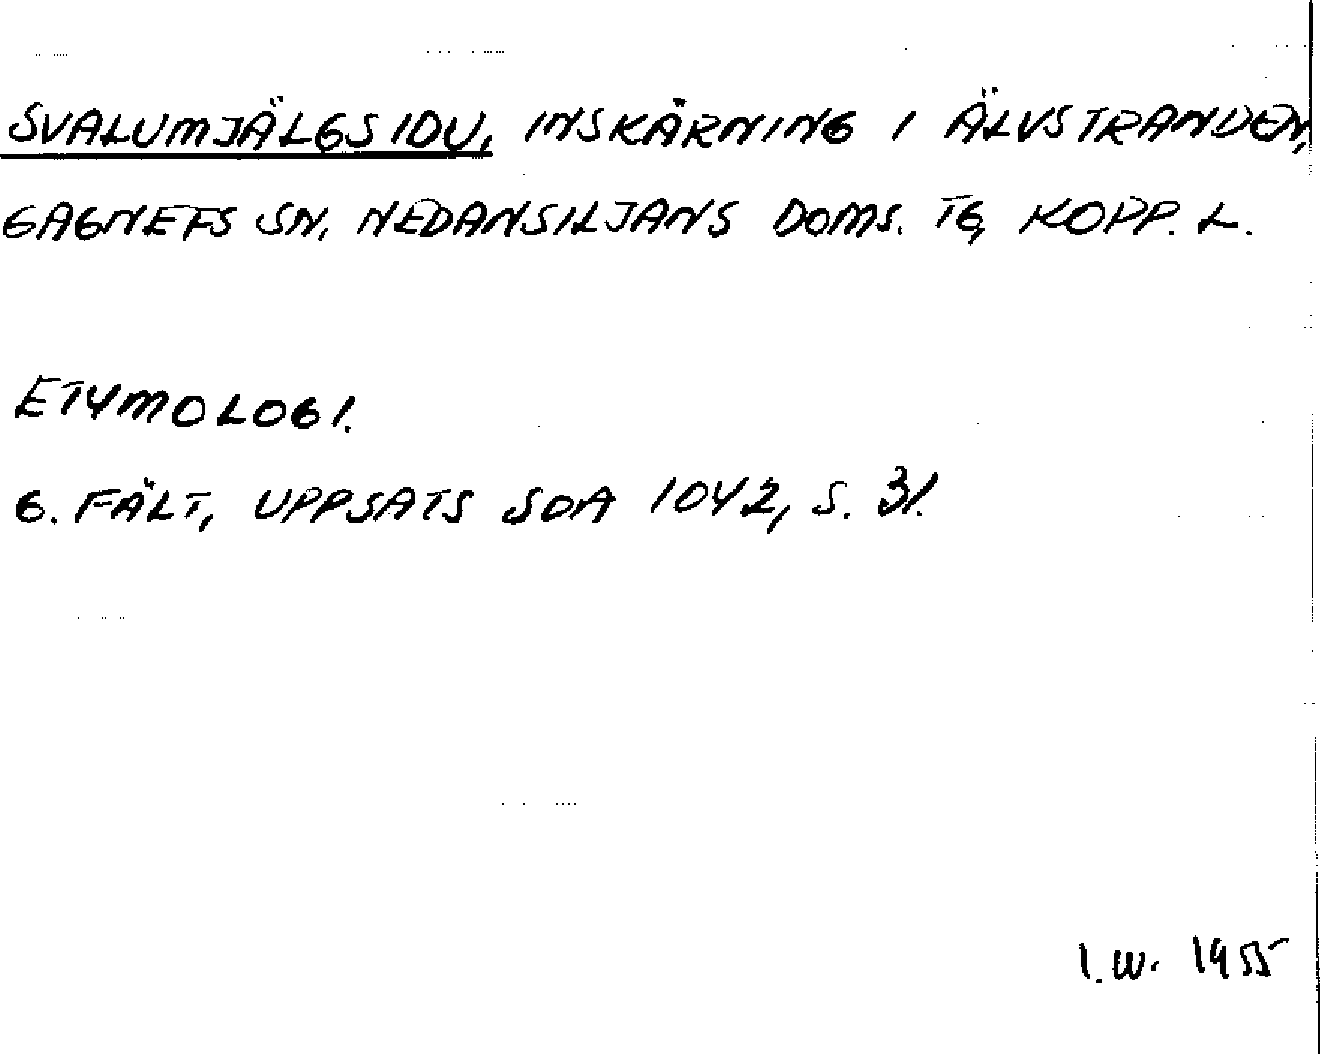 SVALUMJÄLGSIDU, INSKÄRNING I ÄLVSTRANDEN,
GAGNEFS SN, NEDANSILJANS DOMS. TG, KOPP. L.
ETYMOLOGI.
G. FÄLT, UPPSATS SOA 1042, S. 31.
I.W. 1955